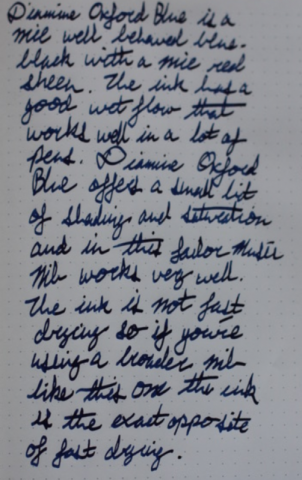 Diamine Oxford Blue is a
nice well behaved blue-
black with a nice red
sheen. The ink has a
good wet flow that
works well in a lot of
pens. Diamine Oxford
Blue offers a small bit
of shading and saturation
and in this Sailor Music
Nib works very well.
The ink is not fast
drying so if you're
using a broader nib
like this one the ink
is the exact opposite
of fast drying.